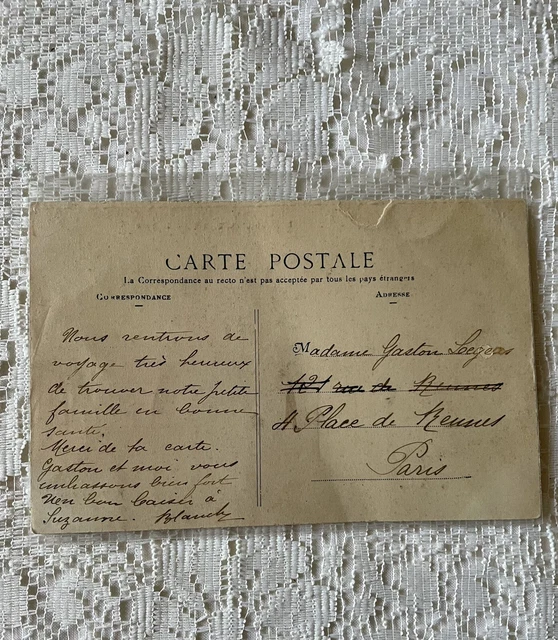 CARTE POSTALE
La Correspondance au recto n'est pas acceptée par tous les pays étrangers
CORRESPONDANCE
ADRESSE
Nous rentrons de
voyage très heureux
de trouver notre petite
famille en bonne
santé.
Merci de ta carte.
Gaston et moi vous
embrassons bien fort
Un bon baiser à
Suzanne. Blanche
Madame Gaston
121 rue de Rennes
4 Place de Rennes
Paris